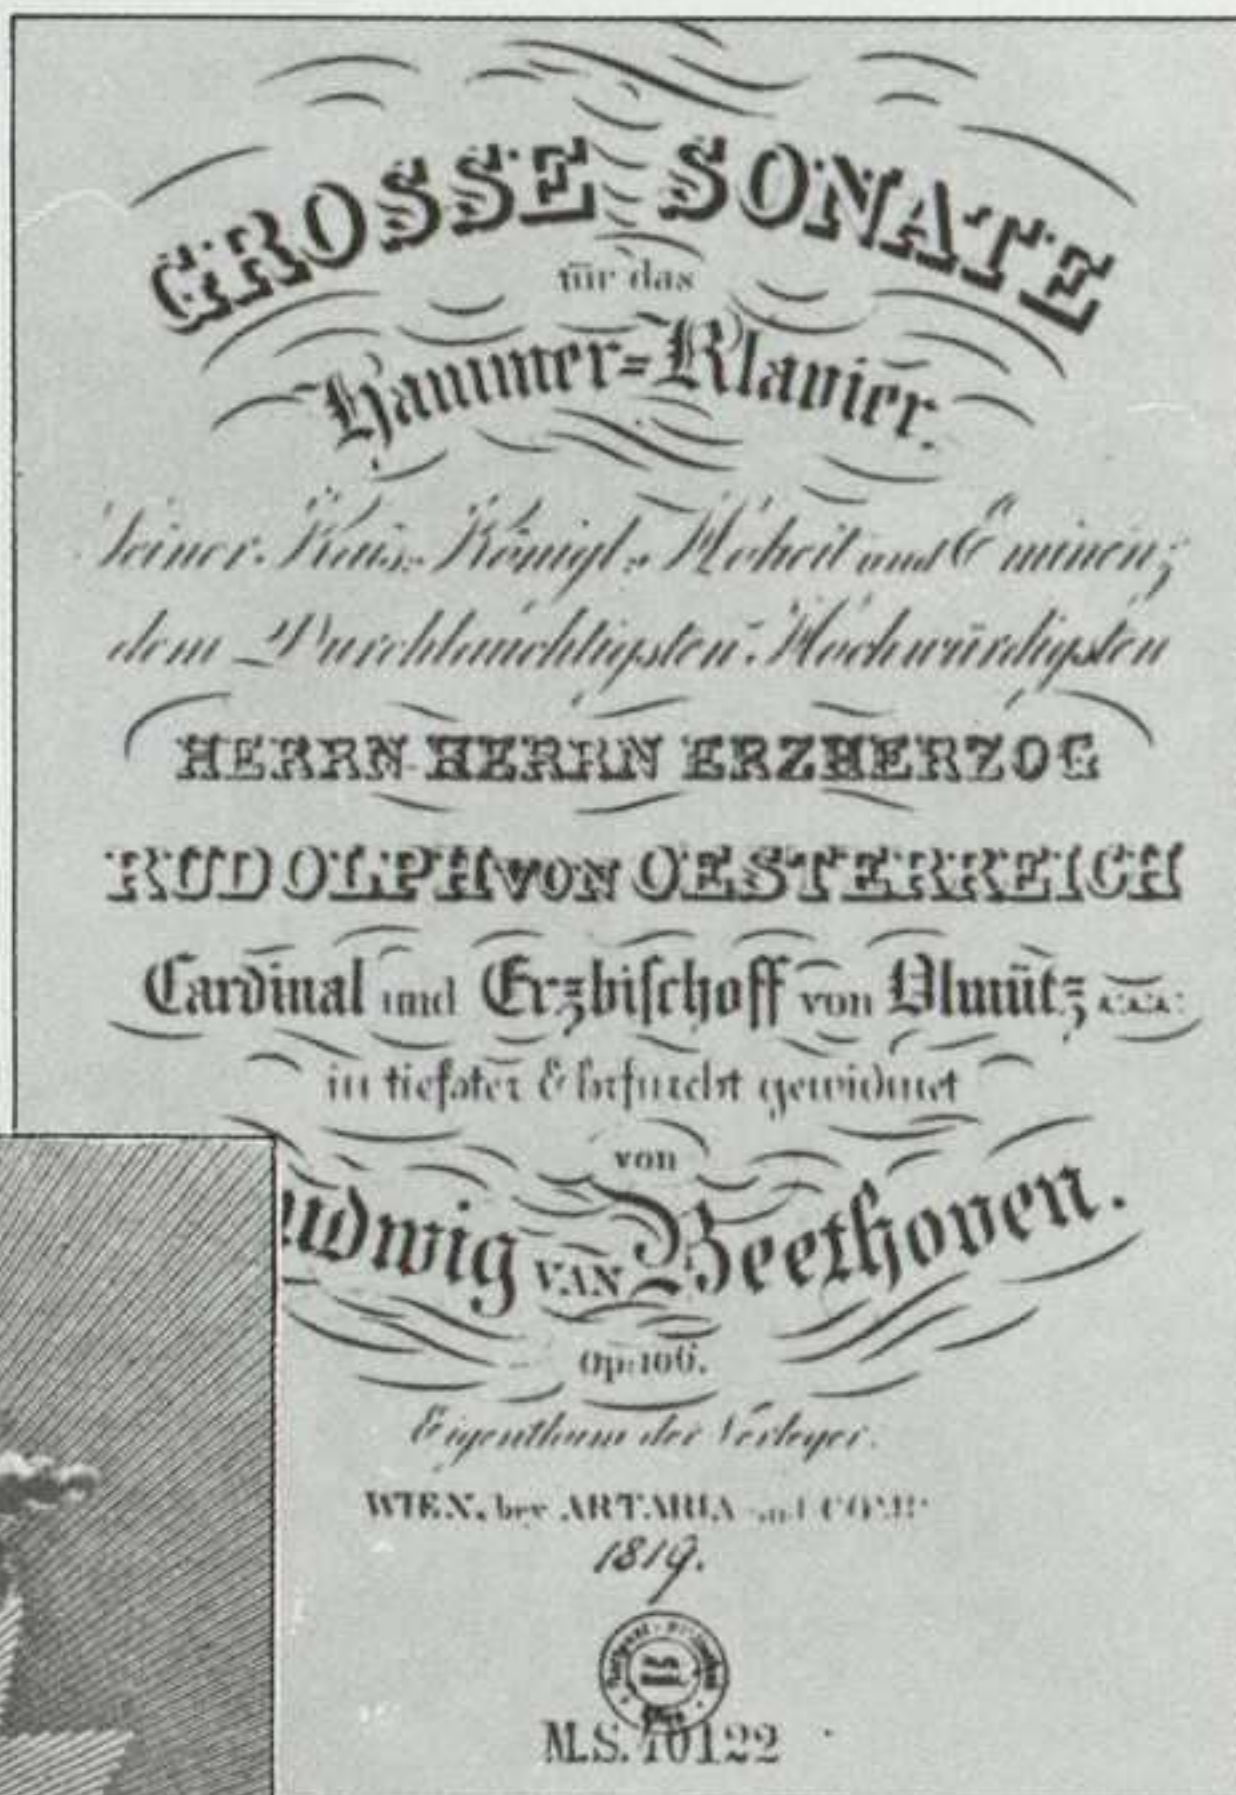 GROSSE SONATE
für das
Hammer=Klavier.
Seiner Kais: Königl: Hoheit und Eminenz
dem Durchlauchtigsten Hochwürdigsten
HERRN HERRN ERZHERZOG
RUDOLPH VON OESTERREICH
Cardinal und Erzbischoff von Olmütz
in tiefster Ehrfurcht gewidmet
von
udwig VAN Beethoven.
Op: 106.
Eigenthum der Verleger.
WIEN, bey ARTARIA und COMP:
1819.
M.S. 40122